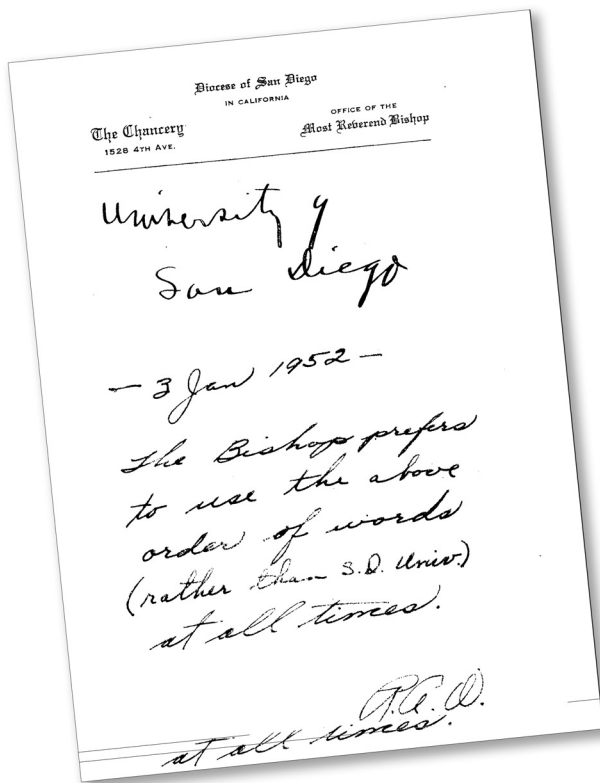 Diocese of San Diego
IN CALIFORNIA
The Chancery
1528 4TH AVE.
OFFICE OF THE
Most Reverend Bishop
University of
San Diego
— 3 Jan 1952 —
The Bishop prefers
to use the above
order of words
(rather than S.D. Univ.)
at all times.
at all times.